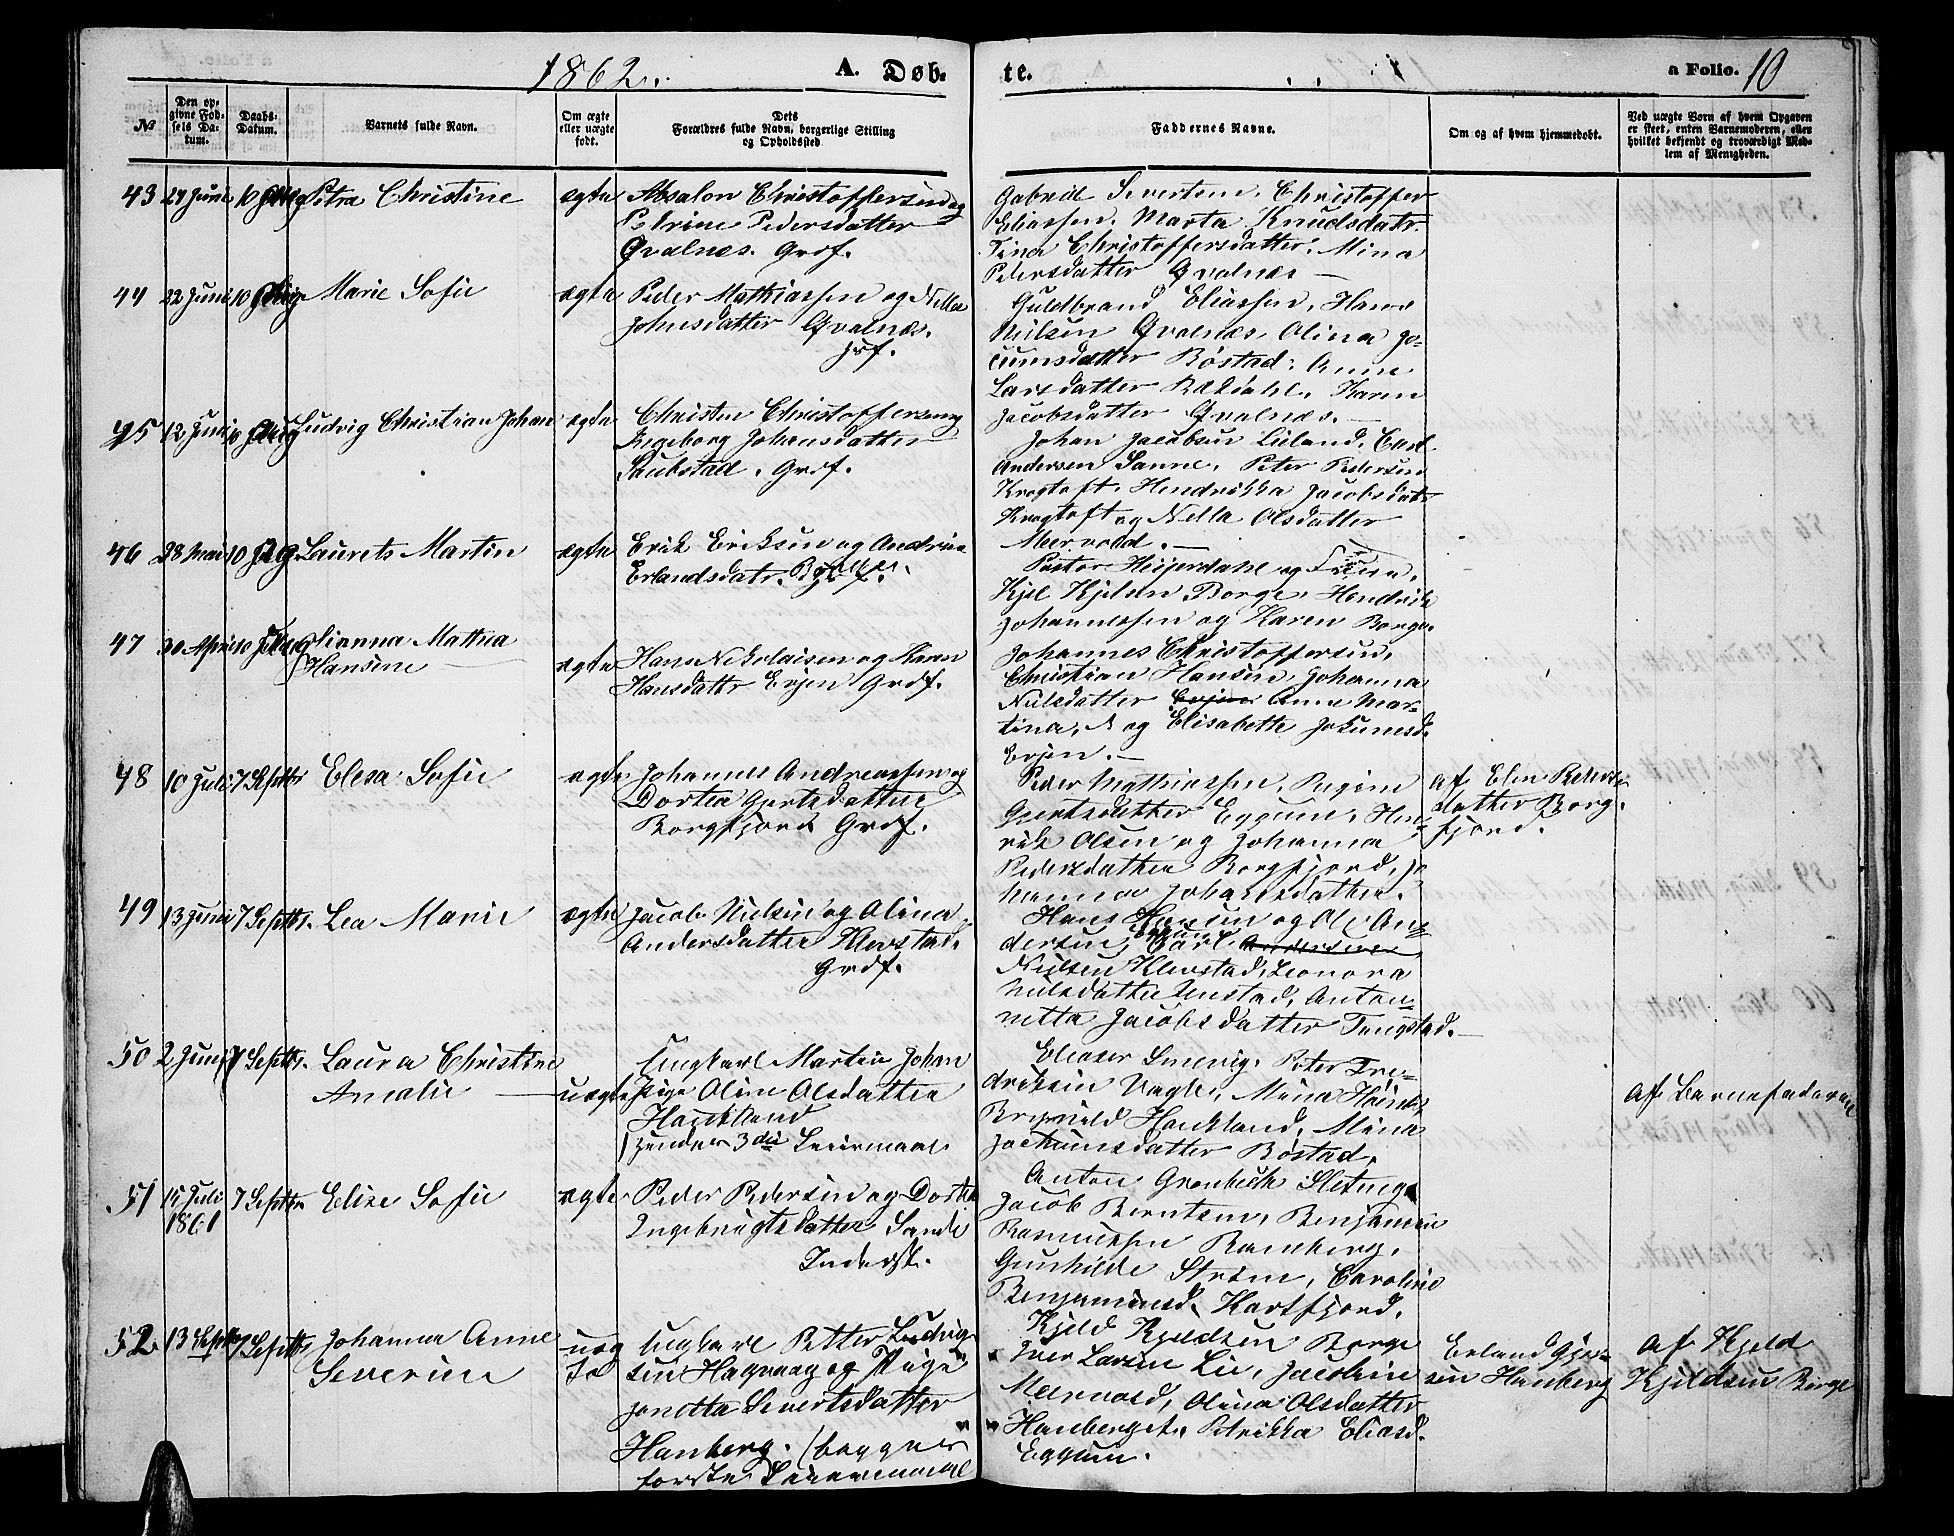 1862.
A. Døb-
te.
a Folio. 10
№
Den op-
givne Fød-
sels Da-
tum.
Daabs-
Datum.
Barnets fulde Navn.
Om ægte
eller uægte
født.
Dets
Forældres fulde Navn, borgerlige Stilling
og Opholdssted.
Faddernes Navne.
Om og af hvem hjemmedøbt.
Ved uægte Børn af hvem Opgaven
er skeet, enten Barnemoderen, eller
hvilket bekjendt og troværdigt Med-
lem af Menigheden.
43 27 Juni 10 Aug Petra Christine ægte Absalon Christoffersen og
Petrine Pedersdatter
Qvalnes. Grdf.
Gabriel Sivertsen, Christoffer
Eliassen, Marta Knudsdatr.
Tina Christoffersdatter, Mina
Pedersdatter Qvalnæs —
44 22 Juni 10 Aug Marie Sofie ægte Peder Mathiassen og Nella
Johnsdatter Qvalnæs.
Grf.
Guldbrand Eliassen, Hans
Nilsen Qvalnæs, Olina Jo-
cumsdatter Bøstad, Anne
Larsdatter Rækdahl, Karen
Jacobsdatter Qvalnæs. —
45 12 Juli 10 Aug Ludvig Christian Johan ægte Christen Christoffersen og
Ingeborg Johansdatter
Saubstad. Grdf.
Johan Jacobsen Liland, Carl
Andersen Sanne, Peter Pedersen
Kragtoft, Hendrikka Jacobsdatr
Kragtoft og Nella Olsdatter
Meervold. —
46 28 Mai 10 Aug. Laurets Martin ægte Erik Eriksen og Andrea
Erlandsdatr.
Pastor Heijerdahl og Frue,
Kjel Kjelsen Borge, Hendrik
Johannessen og Karen Borge.
47 30 April 10 Aug Hianna Mattea
Hansine —
ægte Hans Nikolaisen og Karen
Hansdattr Evjen Grdf.
Johannes Christoffersen,
Christian Hansen, Johanna
Nilsdatter Evjen Anne Mar-
tina, N og Elisabeth Jokumsd.
Evjen. —
48 10 Juli 7 Septbr Elesa Sofie ægte Johannes Andreassen og
Dortea Gjertsdatter
Borgfjord Grdf.
Peder Mathiassen, Regine
Gjertsdatter Eggum, Hen-
rik Olsen og Johanna
Pedersdatter Borgfjord, Jo
hanna Johansdatter.
af Elen Peders-
datter Borg-
fjord.
49 13 Juni 7 Septbr. Lea Marie ægte Jacob Nielsen og Olina
Andersdatter Klevstad.
Grdf.
Hans Hansen og Ole An-
dersen, Carl Andersen
Nielsen Klevstad, Leonora
Nilsdatter Unstad, Anton-
netta Jacobsdatter Tangstad. —
50 2 Juni 7 Septbr. Laura Christine
Amalie —
uægte Ungkarl Martin Johan
Pige Oline Olsdatter
Haukland
hendes 3die Leiermaal
Eleaser Smevig, Peter Fre-
driksen Vagle, Mina Hansdr
Bregnild Haukland, Mina
Jochumsdatter Bøstad.
af Barnefaderen
51 15 Juli
1861
7 Septbr Elise Sofie ægte Peder Pedersen og Dortea
Ingebrigtsdatter Sande
Inderst.
Anton Grønbech Sletnge
Jacob Berntsen, Benjamin
Rasmussen Ramberg,
Gunhilde Strøm, Caroline
Benjaminsd. Kartfjord.
52 13 Septbr 7 Septbr Johanna Anne
Severine
uæg
te
Ungkarl Petter Ludvig-
sen Hagvaag og Pige
Jonetta Sivertsdatter
Hanberg. (begges
første Leiermaal
Kjeld Kjeldsen Borge
Iver Larsen Lie, Jacobine
Meervold, Olina Olsdatter
Hanberget, Petrikka Eliasd.
Eggum.
Erland Gjer-
sen Hanberg
Af Kjeld
Kjeldsen Borge